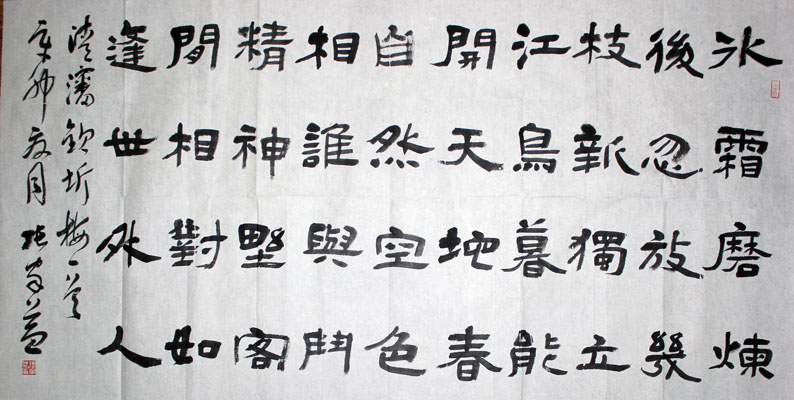 冰霜磨煉
後忽放幾
枝新獨立
江鳥暮能
開天地春
自然空色
相誰與鬥
精神野客
間相對如
逢世外人
清潘欽圻梅一首
辛卯夏月